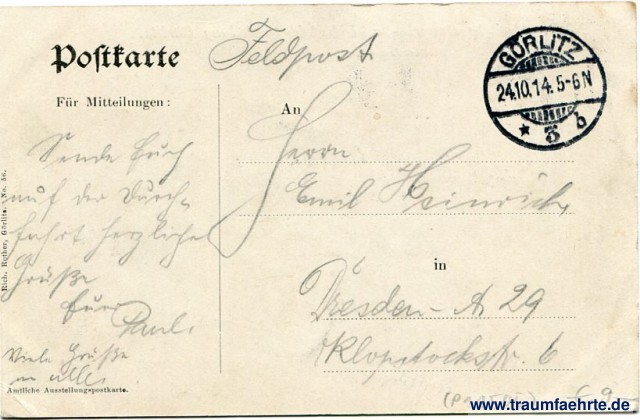 Postkarte
Feldpost
GÖRLITZ
24.10.14. 5-6 N
* 3 b
Für Mitteilungen:
An
Sende Euch
auf der Durch-
fahrt herzliche
Grüße
Euer
Paul.
Viele Grüße
an alle.
Herrn
Emil Heinrich
in
Dresden-A 29
Klopstockstr. 6
Rich. Rother, Görlitz. No. 56.
Amtliche Ausstellungspostkarte.
www.traumfaehrte.de